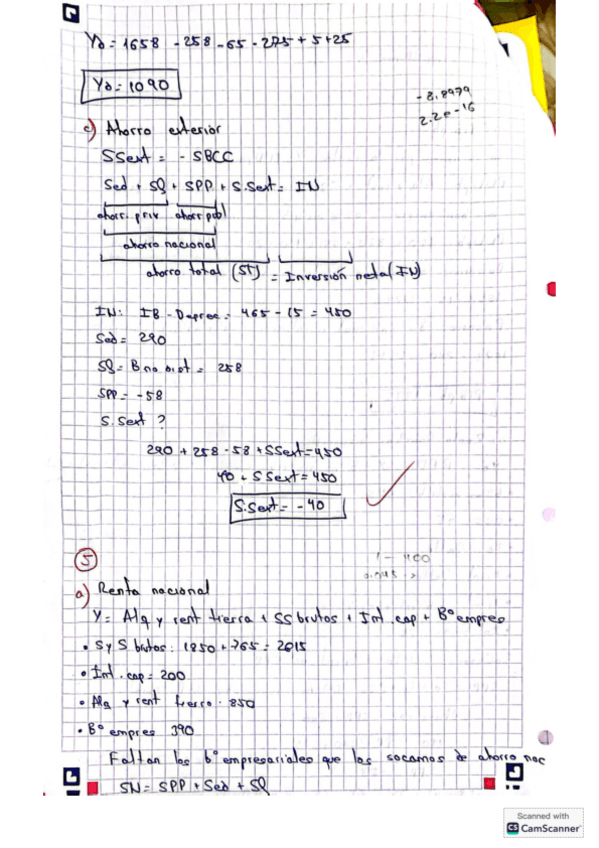 Yd = 1658 - 258 - 65 - 275 + 5 + 25
Yd = 1090
- 2.8979
2.2e-16
c) Ahorro exterior
SSext = - SBCC
Sed + SQ + SPP + S.Sext = IN
ahorr. priv ahorr. publ
ahorro nacional
ahorro total (ST) = Inversión neta (IN)
IN: IB - Deprec = 465 - 15 = 450
Sed = 290
SQ = B no dist = 258
SPP = -58
S. Sext ?
290 + 258 - 58 + SSext = 450
40 + SSext = 450
S.Sext = - 40
5
a) Renta nacional
Y = Alq y rent tierra + SS brutos + Int. cap + Bº empres
• S y S brutos: 1850 + 765 = 2615
• Int. cap = 200
• Alq y rent tierra = 850
• Bº empres 390
Faltan los bº empresariales que los sacamos de ahorro nac
SN = SPP + Sed + SQ
Scanned with
CS CamScanner